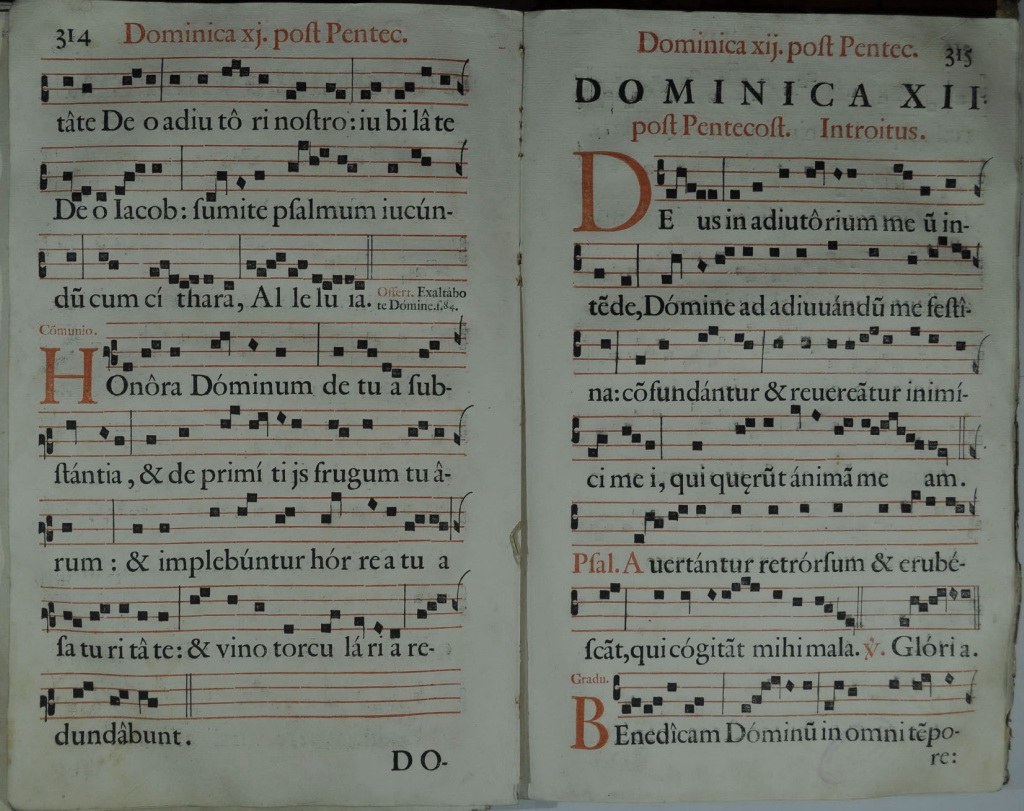 314 Dominica xj. poſt Pentec.
tâte De o adiu tô ri noſtro: iu bi lâ te
De o Iacob: ſumite pſalmum iucún-
dũ cum cí thara, Al le lu ia. Offert. Exaltâbo
te Dómine. f. 84.
Cómunio.
HOnôra Dóminum de tu a ſub-
ſtántia, & de primí ti js frugum tu â-
rum: & implebúntur hór re a tu a
ſa tu ri tâ te: & vino torcu lá ri a re-
dundâbunt.
DO-
Dominica xij. poſt Pentec. 315
DOMINICA XII
poſt Pentecoſt. Introitus.
DE us in adiutôrium me ũ in-
tẽde, Dómine ad adiuuándũ me feſtî-
na: cõfundántur & reuereãtur inimí-
ci me i, qui quęrũt ánimã me am.
Pſal. A uertántur retrórſum & erubé-
ſcãt, qui cógitãt mihi mala. ℣. Glóri a.
Gradu.
BEnedîcam Dóminũ in omni tẽpo-
re: